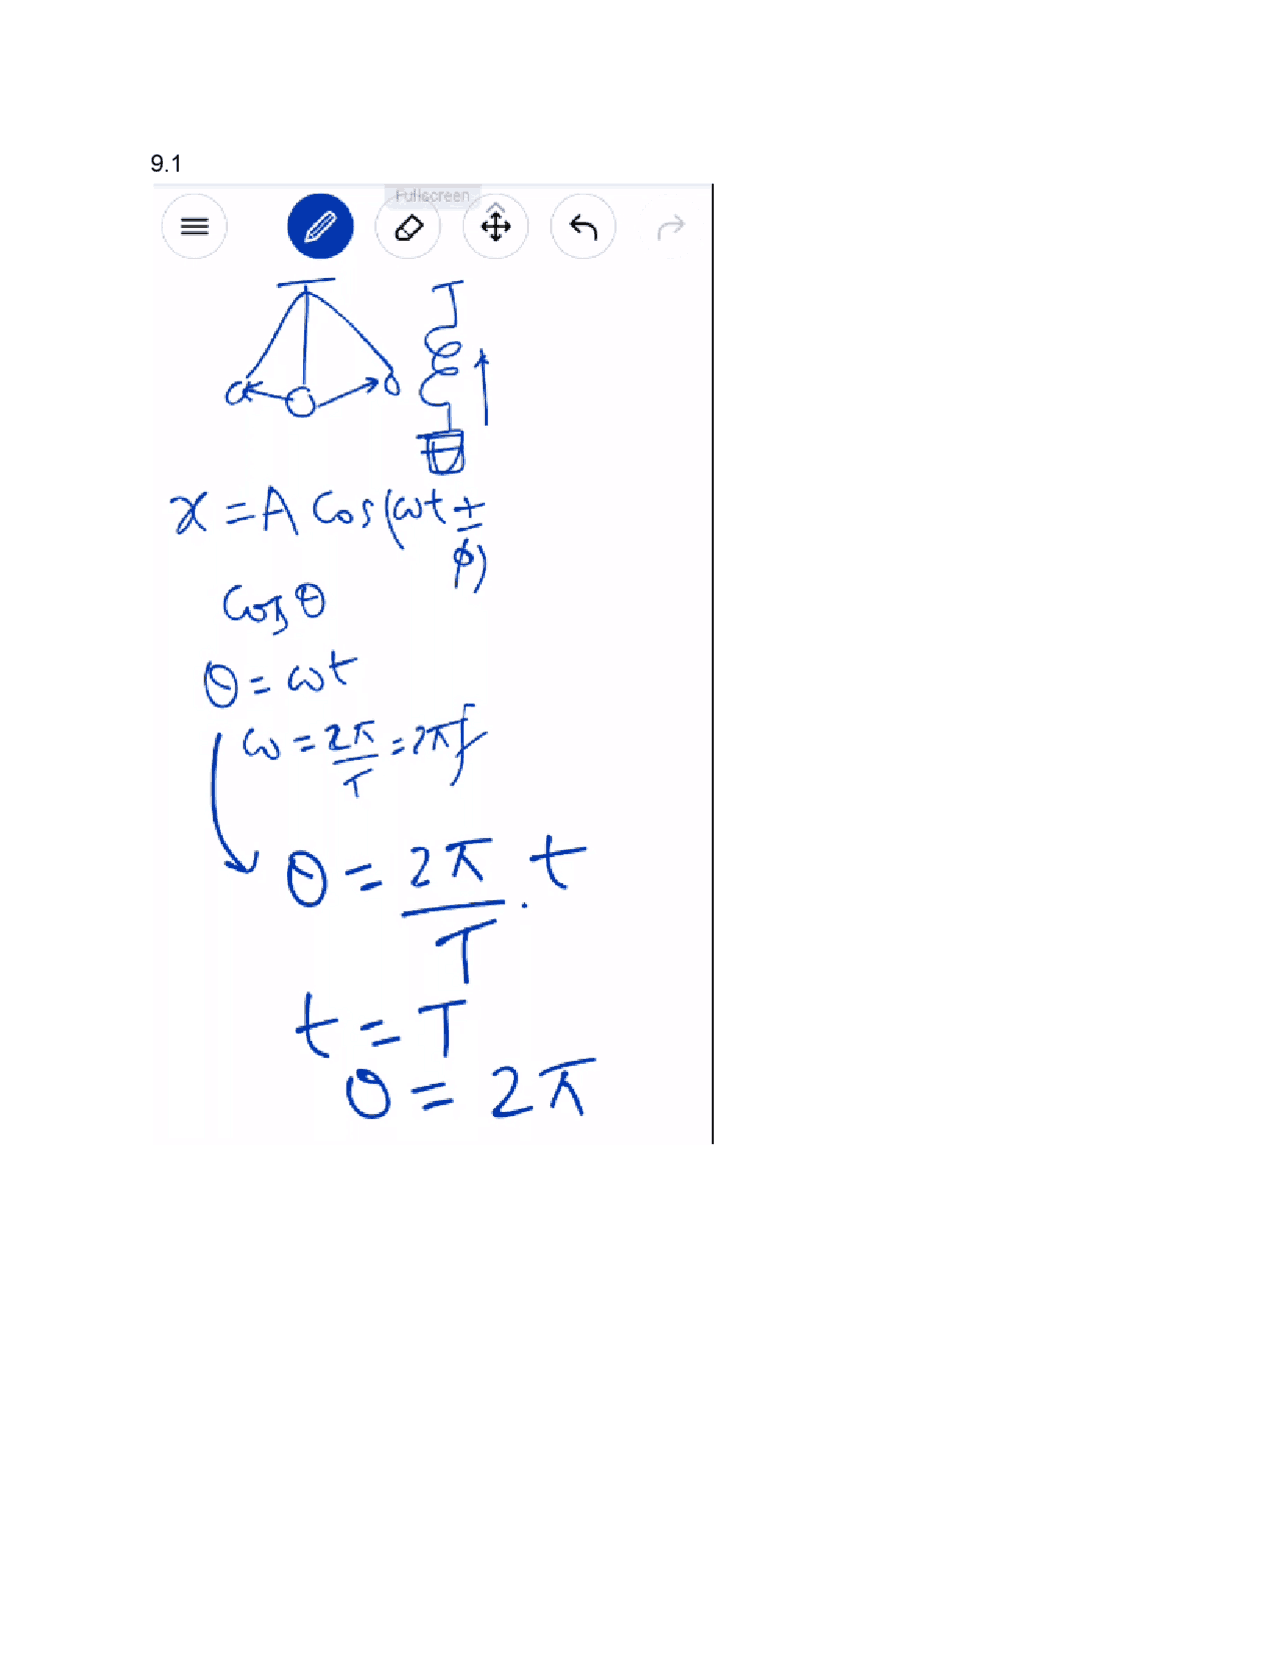 9.1
Fullscreen
x = A Cos(ωt ±
φ)
Cos θ
θ = ωt
ω = 2π/T = 2πf
θ = 2π/T . t
t = T
θ = 2π